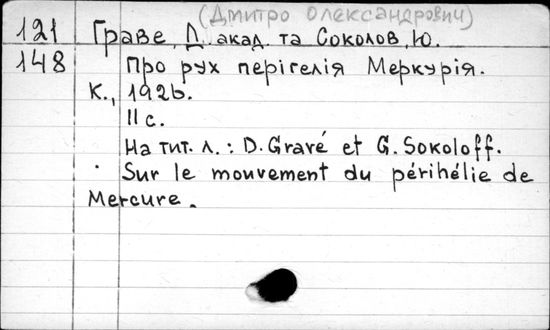 (Дмитро Олександрович)
121 Граве, Д. акад. та Соколов, Ю.
148 Про рух перігелія Меркурія.
К., 1926.
11 с.
На тит. л.: D. Gravé et G. Sokoloff.
Sur le mouvement du périhélie de
Mercure.